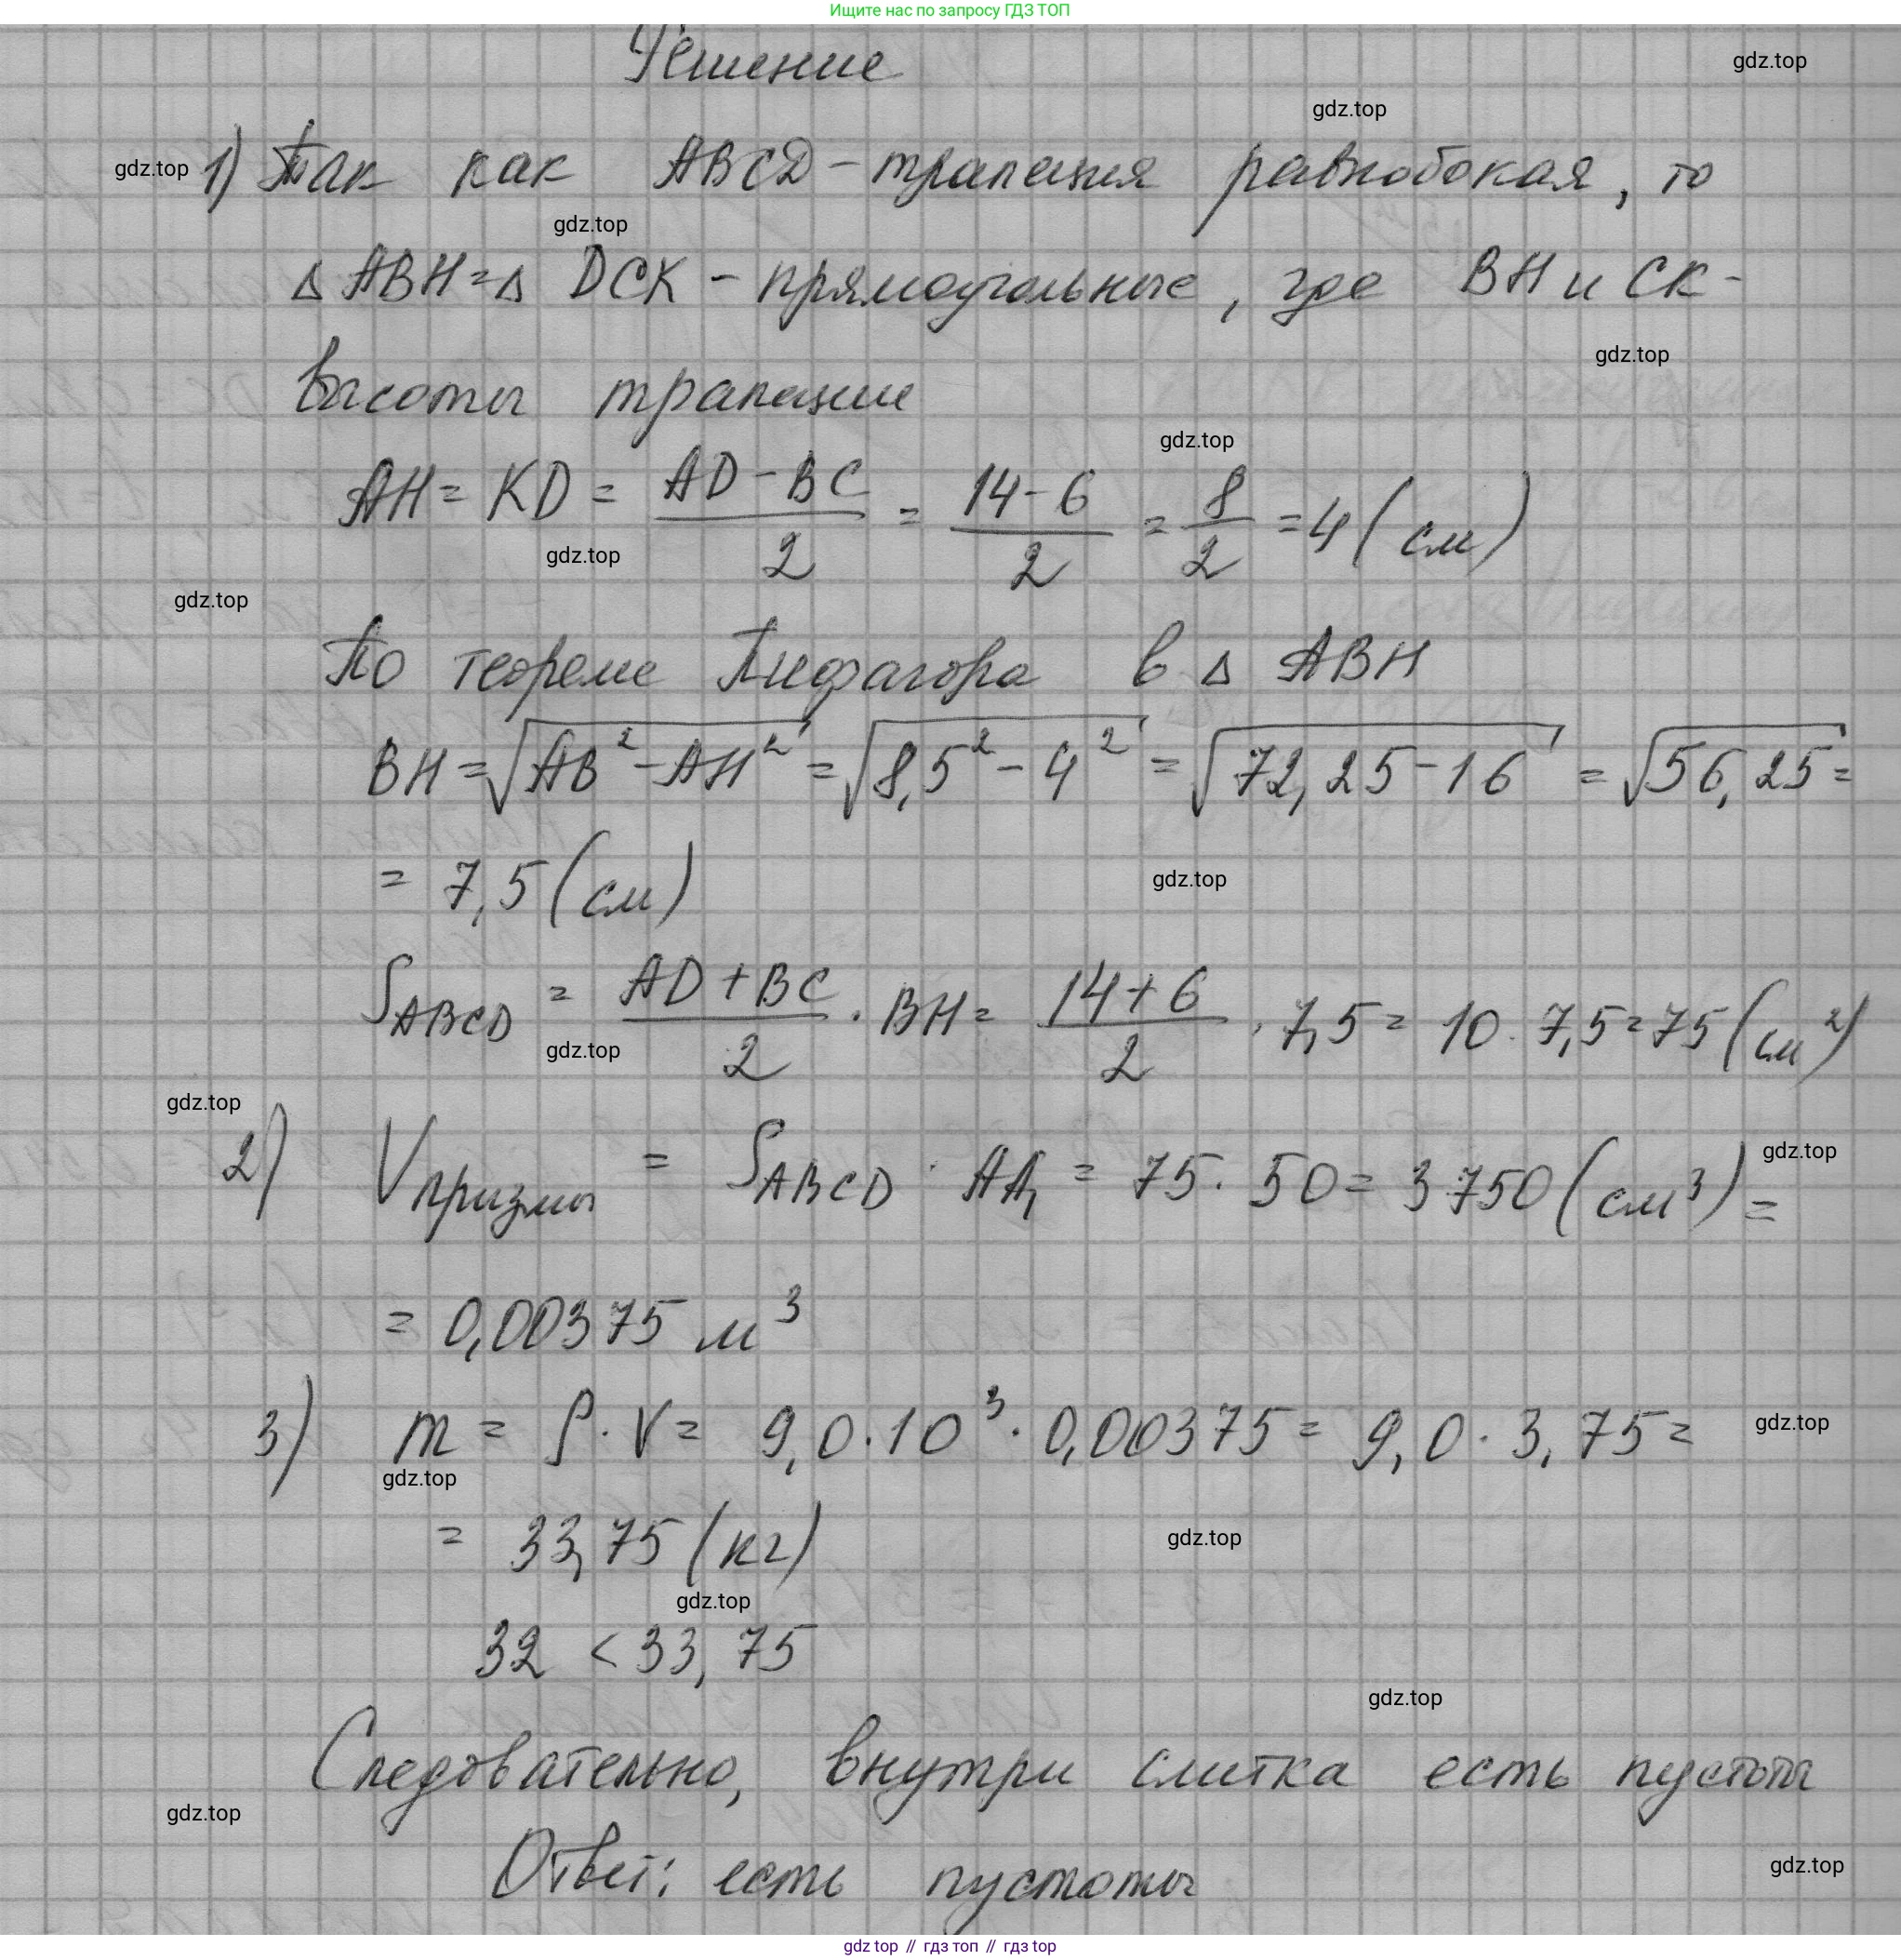 Ищите нас по запросу ГДЗ ТОП
Решение
gdz.top
gdz.top
gdz.top
1) Так как ABCD - трапеция равнобокая, то
gdz.top
Δ ABH = Δ DCK - прямоугольные, где BH и CK -
gdz.top
высоты трапеции
gdz.top
AH = KD = (AD - BC)/2 = (14 - 6)/2 = 8/2 = 4 (см)
gdz.top
gdz.top
По теореме Пифагора в Δ ABH
BH = √(AB² - AH²) = √(8,5² - 4²) = √(72,25 - 16) = √56,25 =
= 7,5 (см)
gdz.top
S_ABCD = (AD + BC)/2 · BH = (14 + 6)/2 · 7,5 = 10 · 7,5 = 75 (см²)
gdz.top
gdz.top
2) V призмы = S_ABCD · AA₁ = 75 · 50 = 3750 (см³) =
gdz.top
= 0,00375 м³
3) m = ρ · V = 9,0 · 10³ · 0,00375 = 9,0 · 3,75 =
gdz.top
gdz.top
= 33,75 (кг)
gdz.top
gdz.top
32 < 33,75
gdz.top
Следовательно, внутри слитка есть пустоты
gdz.top
Ответ: есть пустоты
gdz.top
gdz top // гдз топ // гдз top